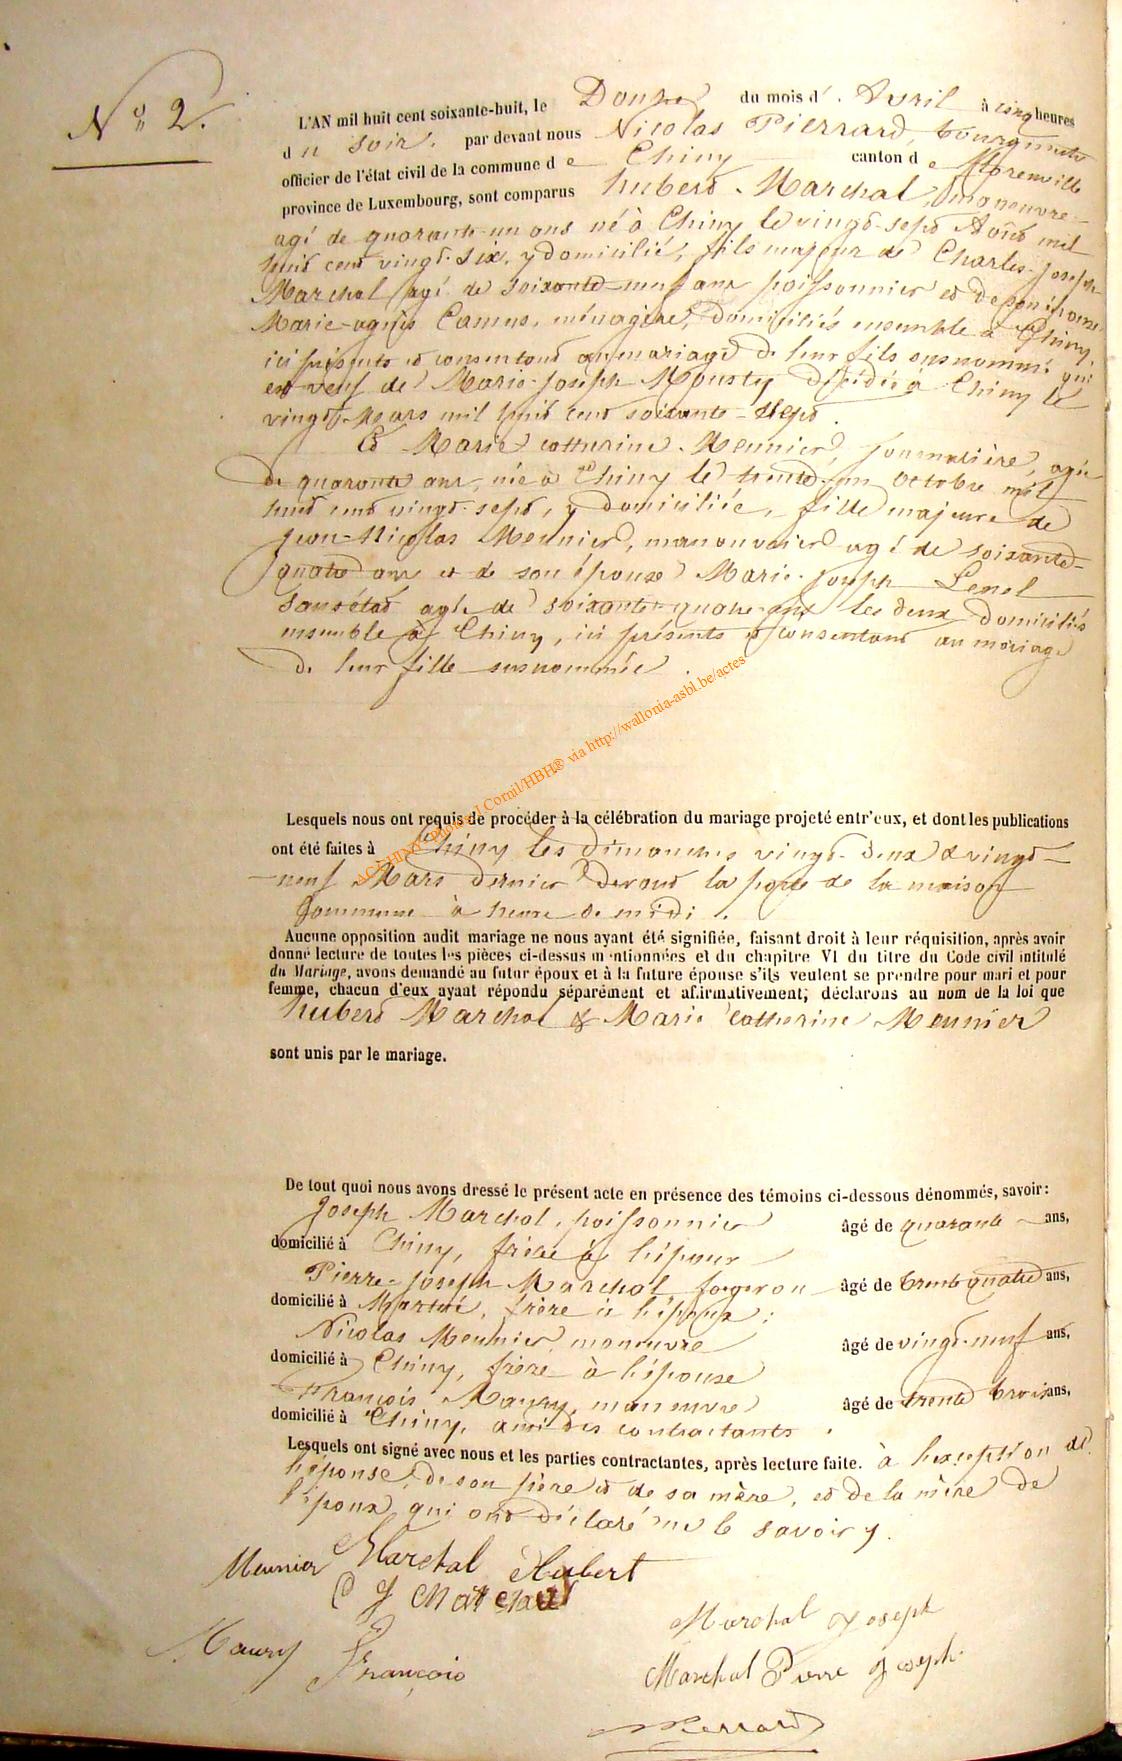 N° 2.
L'AN mil huit cent soixante-huit, le Douze du mois d' Avril à cinq heures
du soir. par devant nous Nicolas Pierrard, bourgmestre
officier de l'état civil de la commune de Chiny canton de Florenville
province de Luxembourg, sont comparus hubert Marchal, manœuvre
agé de quarante-un ans né à Chiny le vingt-sept Août mil
huit cent vingt-six, y domicilié, fils majeur de Charles-Joseph
Marchal agé de soixante-neuf ans poissonnier et de son épouse
Marie-agnès Camus, ménagère, domiciliés ensemble à Chiny,
ici présents et consentant au mariage de leur fils susnommé qui
est veuf de Marie-Joseph Mousty décédée à Chiny le
vingt Mars mil huit cent soixante-sept.
Et Marie catherine Meunier, journalière, agée
de quarante ans, née à Chiny le trente-un Octobre mil
huit cent vingt-sept, y domiciliée, fille majeure de
Jean-Nicolas Meunier, manouvrier agé de soixante-
quatre ans et de son épouse Marie-Joseph
sans état agée de soixante-quatre ans les deux domiciliés
ensemble à Chiny, ici présents et consentant au mariage
de leur fille susnommée.
ACCHINY-Photo J.Cornil/HBH® via http://wallonia-asbl.be/actes
Lesquels nous ont requis de procéder à la célébration du mariage projeté entr'eux, et dont les publications
ont été faites à Chiny les dimanches vingt-deux & vingt-
neuf Mars dernier devant la porte de la maison
Commune à heure de midi.
Aucune opposition audit mariage ne nous ayant été signifiée, faisant droit à leur réquisition, après avoir
donné lecture de toutes les pièces ci-dessus mentionnées et du chapitre VI du titre du Code civil intitulé
du Mariage, avons demandé au futur époux et à la future épouse s'ils veulent se prendre pour mari et pour
femme, chacun d'eux ayant répondu séparément et affirmativement; déclarons au nom de la loi que
hubert Marchal & Marie catherine Meunier
sont unis par le mariage.
De tout quoi nous avons dressé le présent acte en présence des témoins ci-dessous dénommés, savoir:
Joseph Marchal, poissonnier âgé de quarante ans,
domicilié à Chiny, frère à l'époux
Pierre-Joseph Marchal forgeron âgé de trente quatre ans,
domicilié à frère à l'époux;
Nicolas Meunier manœuvre âgé de vingt-neuf ans,
domicilié à Chiny, frère à l'épouse
François Maury, manœuvre âgé de trente trois ans,
domicilié à Chiny, ami des contractants.
Lesquels ont signé avec nous et les parties contractantes, après lecture faite. à l'exception de
l'épouse, de son père et de sa mère, et de la mère de
l'époux, qui ont déclaré ne le savoir
Meunier Marchal Hubert
C J Marchal
Maury François
Marchal Joseph
Marchal Pierre Joseph
Pierrard